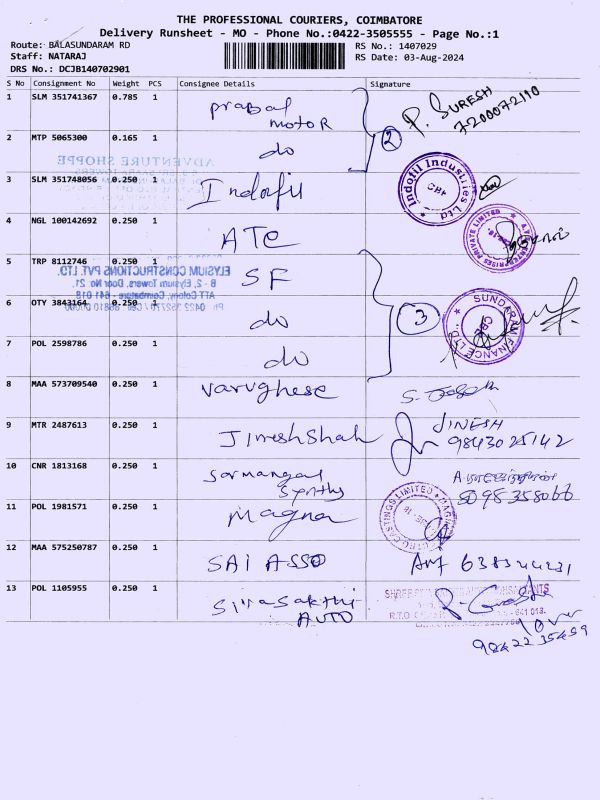 THE PROFESSIONAL COURIERS, COIMBATORE
Delivery Runsheet - MO - Phone No.:0422-3505555 - Page No.:1
Route: BALASUNDARAM RD
RS No.: 1407029
Staff: NATARAJ
RS Date: 03-Aug-2024
DRS No.: DCJB140702901
S No Consignment No Weight PCS Consignee Details Signature
1 SLM 351741367 0.785 1 prabal motor P. SURESH
7200072110
2 MTP 5065300 0.165 1 do 2
ADVENTURE SHOPPE
3 SLM 351748056 0.250 1 Indofil Indofil Industries Ltd CBE
4 NGL 100142692 0.250 1 ATC PRIVATE LIMITED
5 TRP 8112746 0.250 1 SF
ELYSIUM CONSTRUCTIONS PVT. LTD.
B - 2, Elysium Towers, Door No. 21,
ATT Colony, Coimbatore - 641 018
6 OTY 3843164 0.250 1 do 3 SUNDARAM FINANCE LTD. CBE
7 POL 2598786 0.250 1 do
8 MAA 573709540 0.250 1 varughese
9 MTR 2487613 0.250 1 Jineshshah JINESH
9843025142
10 CNR 1813168 0.250 1 Sarmangal
Synths
11 POL 1981571 0.250 1 Magna CASTINGS LIMITED
12 MAA 575250787 0.250 1 SAI ASSO
13 POL 1105955 0.250 1 Sivasakthi
AUTO
R.T.O
9842235459